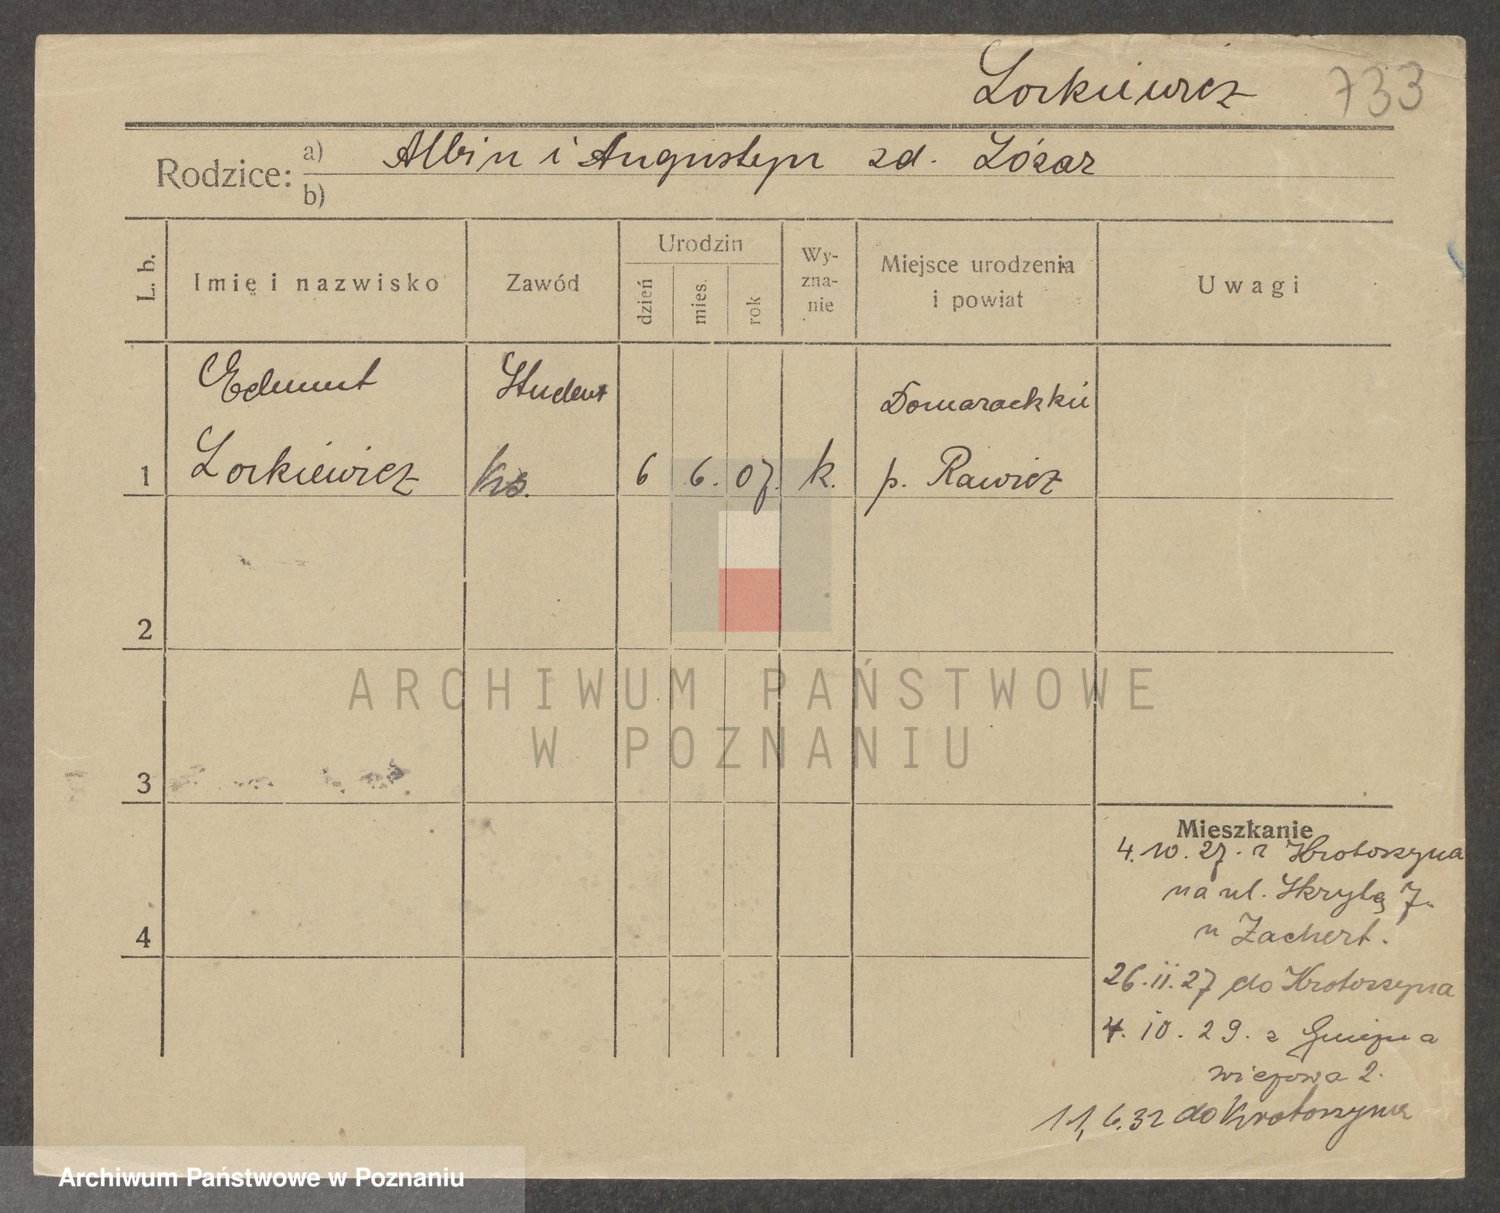 Lorkiewicz 733
Rodzice: a) Albin i Augustyn zd. Lózar
b)
L. b. Imię i nazwisko Zawód Urodzin dzień mies. rok Wy-zna-nie Miejsce urodzenia i powiat Uwagi
Edmunt Student Domarackkii
1 Lorkiewicz ks. 6 6. 07. k. p. Rawicz
2
ARCHIWUM PAŃSTWOWE
W POZNANIU
3
Mieszkanie
4. 10. 27. z Krotoszyna
na ul. Skrytą 7.
u Zachert.
4
26. 11. 27 do Krotoszyna
4. 10. 29. z Gniezna
wieżowa 2.
11, 6. 32 do Krotoszyna
Archiwum Państwowe w Poznaniu